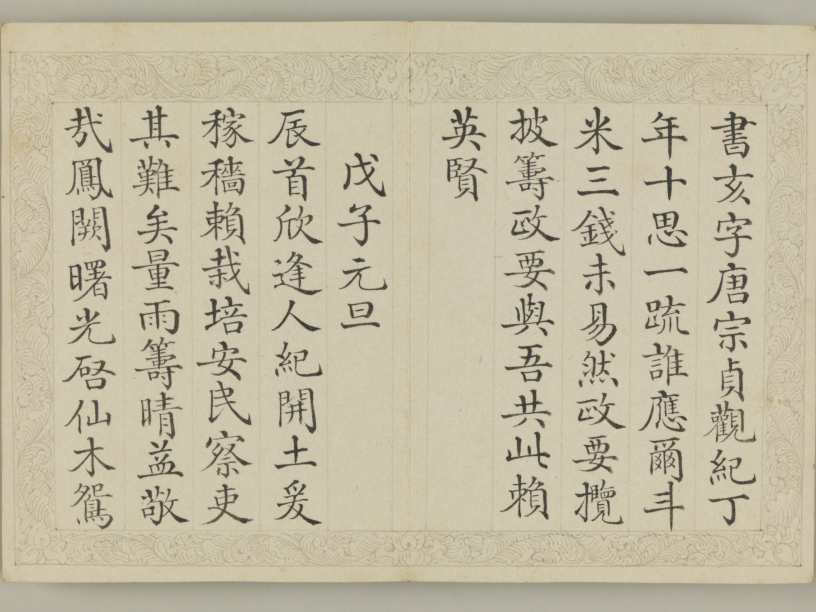 書亥字唐宗貞觀紀丁
年十思一䟽誰應爾斗
米三錢未易然政要攬
披籌政要與吾共此賴
英賢
戊子元旦
辰首欣逢人紀開土爰
稼穡賴栽培安民察吏
其難矣量雨籌晴益敬
㢤鳳闕曙光啓仙木鴛